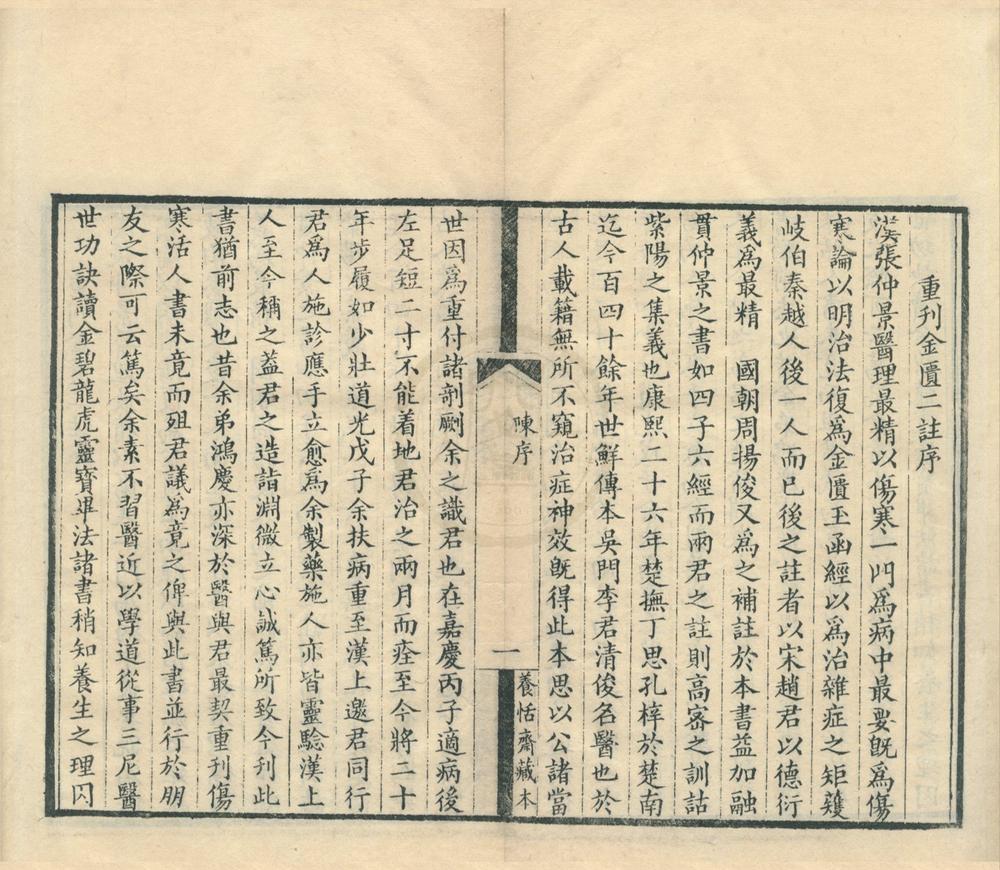 重刊金匱二註序
漢張仲景醫理最精以傷寒一門為病中最要旣為傷
寒論以明治法復為金匱玉函經以為治雜症之矩矱
岐伯秦越人後一人而已後之註者以宋趙君以德衍
義為最精　國朝周揚俊又為之補註於本書益加融
貫仲景之書如四子六經而兩君之註則高密之訓詁
紫陽之集義也康熙二十六年楚撫丁思孔梓於楚南
迄今百四十餘年世鮮傳本吳門李君清俊名醫也於
古人載籍無所不窺治症神效旣得此本思以公諸當
陳序
一
養恬齋藏本
世因為重付諸剞劂余之識君也在嘉慶丙子適病後
左足短二寸不能着地君治之兩月而痊至今將二十
年步履如少壯道光戊子余扶病重至漢上邀君同行
君為人施診應手立愈為余製藥施人亦皆靈驗漢上
人至今稱之蓋君之造詣淵微立心誠篤所致今刊此
書猶前志也昔余弟鴻慶亦深於醫與君最契重刊傷
寒活人書未竟而殂君議為竟之俾與此書並行於朋
友之際可云篤矣余素不習醫近以學道從事三尼醫
世功訣讀金碧龍虎靈寶畢法諸書稍知養生之理因